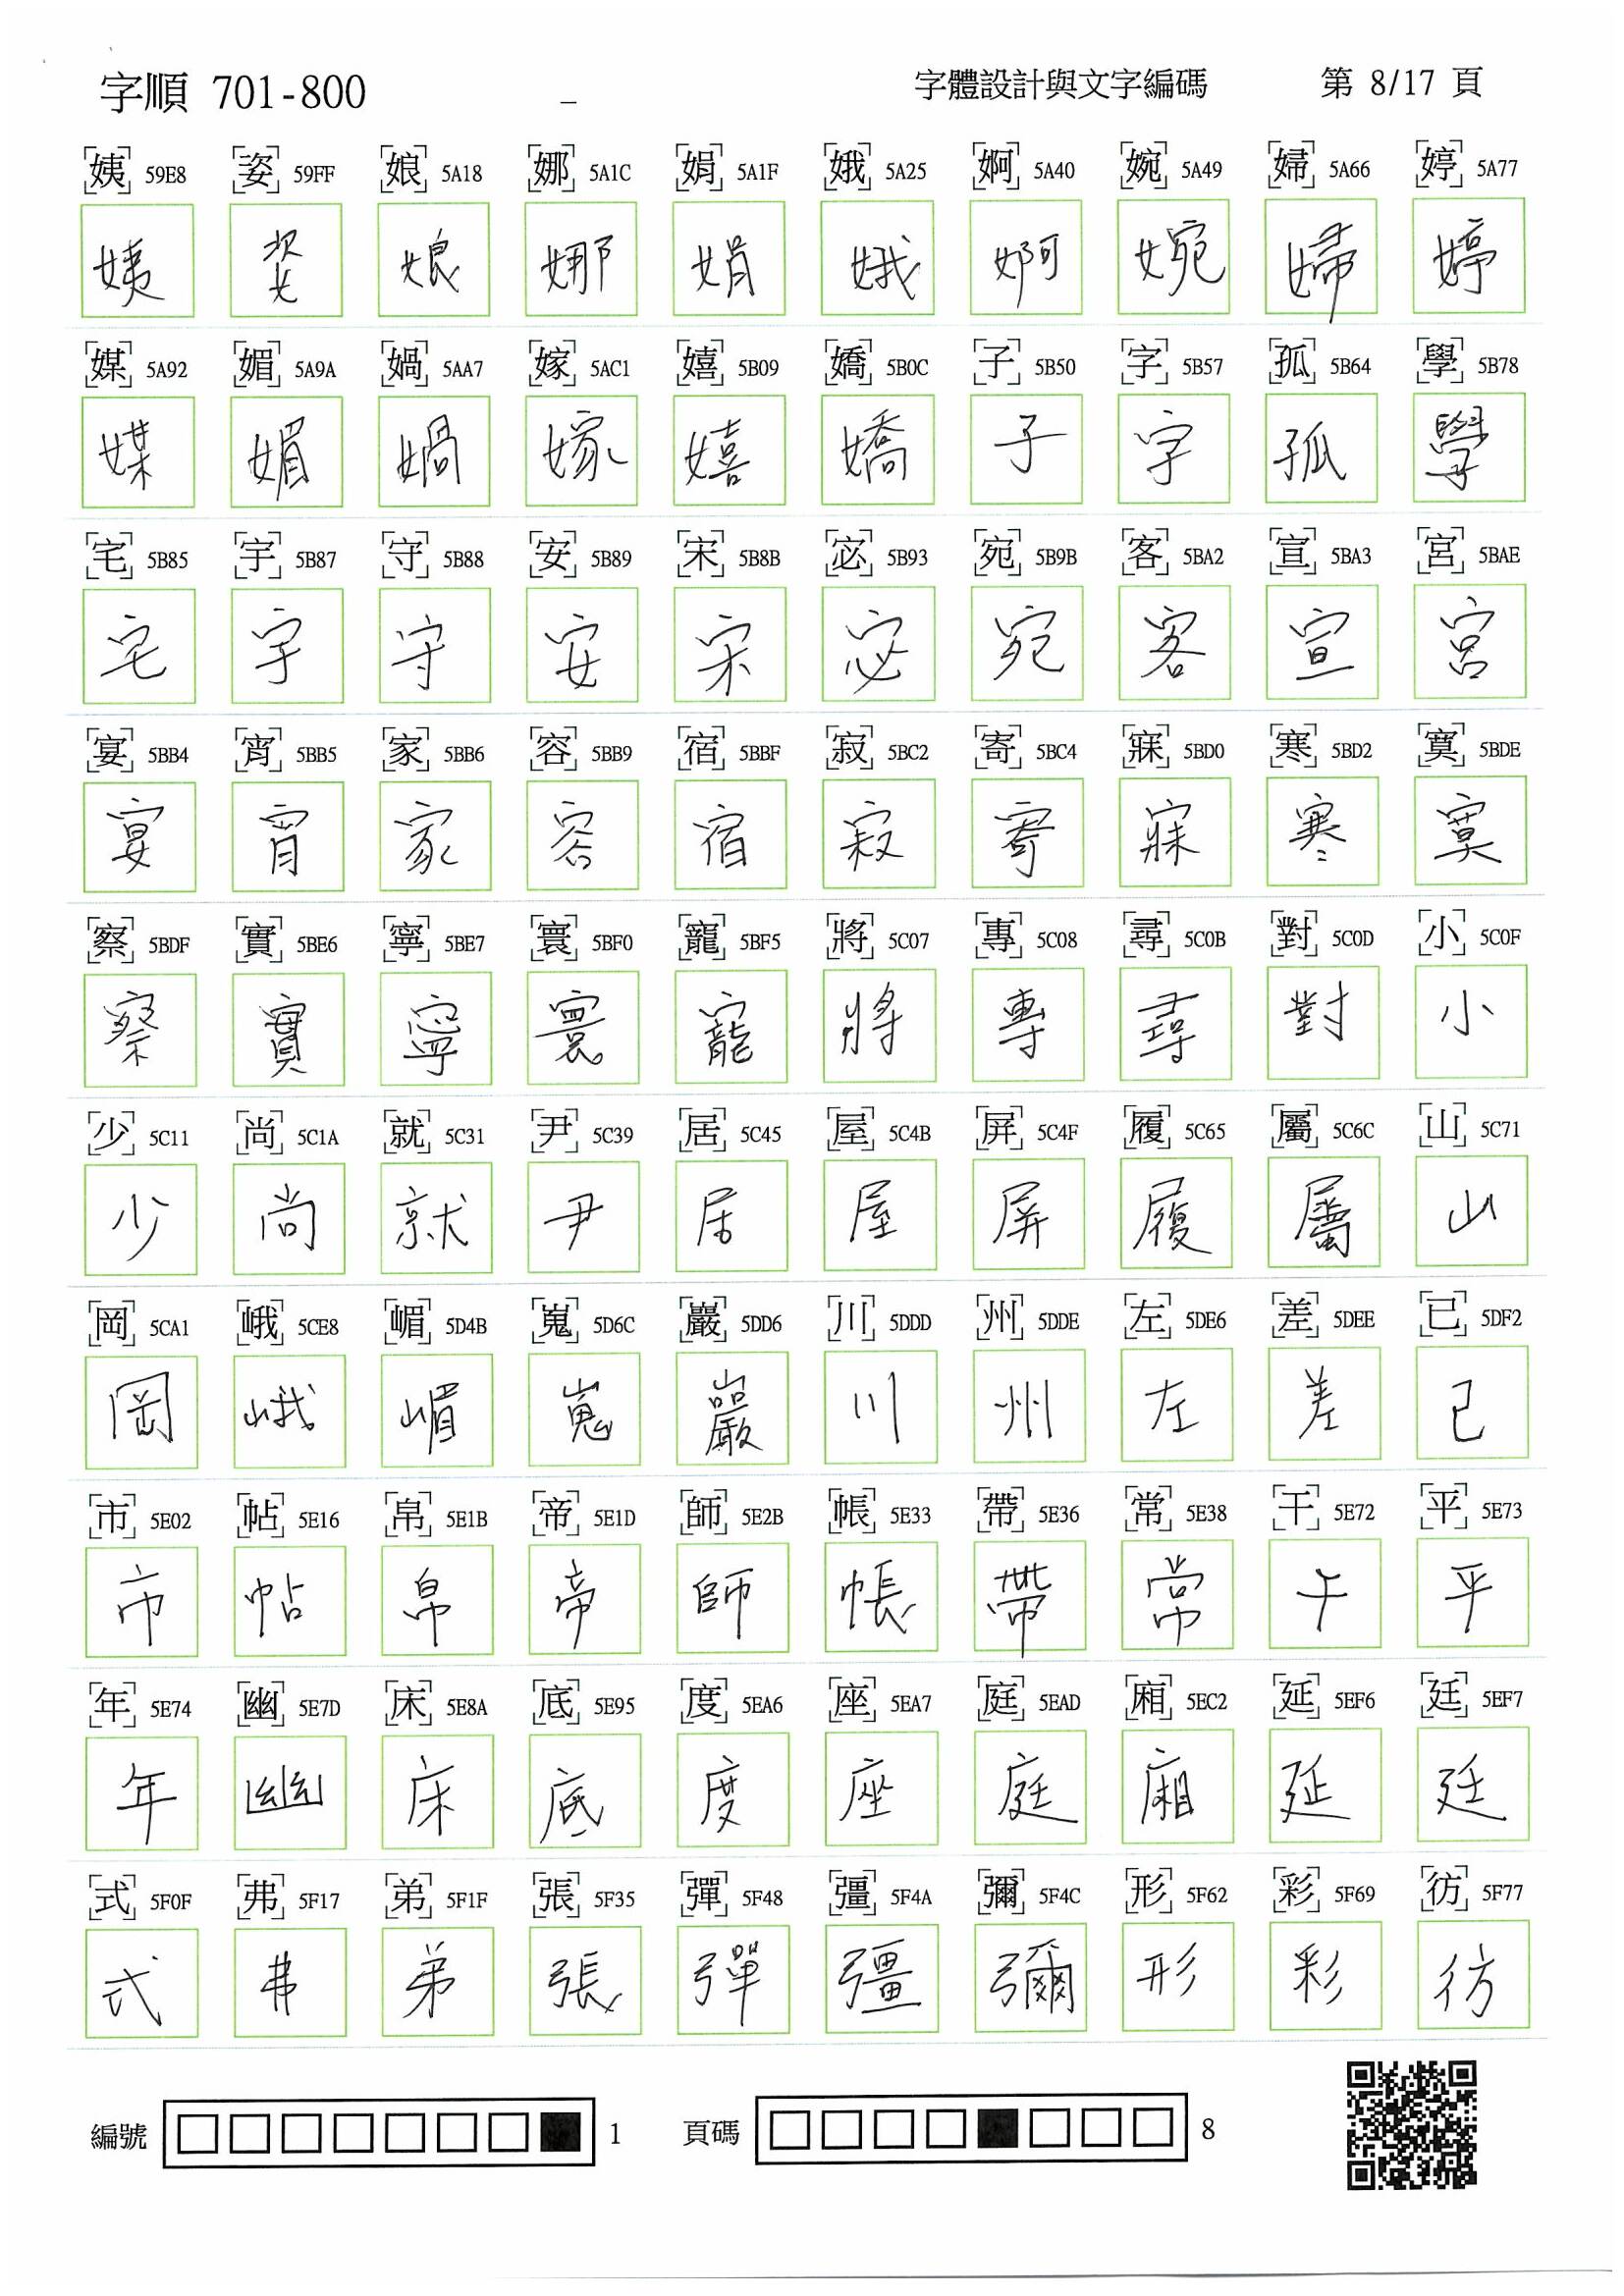 字順 701-800 – 字體設計與文字編碼 第 8/17 頁
姨 59E8 姿 59FF 娘 5A18 娜 5A1C 娟 5A1F 娥 5A25 婀 5A40 婉 5A49 婦 5A66 婷 5A77
姨 姿 娘 娜 娟 娥 婀 婉 婦 婷
媒 5A92 媚 5A9A 媧 5AA7 嫁 5AC1 嬉 5B09 嬌 5B0C 子 5B50 字 5B57 孤 5B64 學 5B78
媒 媚 媧 嫁 嬉 嬌 子 字 孤 學
宅 5B85 宇 5B87 守 5B88 安 5B89 宋 5B8B 宓 5B93 宛 5B9B 客 5BA2 宣 5BA3 宮 5BAE
宅 宇 守 安 宋 宓 宛 客 宣 宮
宴 5BB4 宵 5BB5 家 5BB6 容 5BB9 宿 5BBF 寂 5BC2 寄 5BC4 寐 5BD0 寒 5BD2 寞 5BDE
宴 宵 家 容 宿 寂 寄 寐 寒 寞
察 5BDF 實 5BE6 寧 5BE7 寰 5BF0 寵 5BF5 將 5C07 專 5C08 尋 5C0B 對 5C0D 小 5C0F
察 實 寧 寰 寵 將 專 尋 對 小
少 5C11 尚 5C1A 就 5C31 尹 5C39 居 5C45 屋 5C4B 屏 5C4F 履 5C65 屬 5C6C 山 5C71
少 尚 就 尹 居 屋 屏 履 屬 山
岡 5CA1 峨 5CE8 嵋 5D4B 嵬 5D6C 巖 5DD6 川 5DDD 州 5DDE 左 5DE6 差 5DEE 已 5DF2
岡 峨 嵋 嵬 巖 川 州 左 差 已
市 5E02 帖 5E16 帛 5E1B 帝 5E1D 師 5E2B 帳 5E33 帶 5E36 常 5E38 干 5E72 平 5E73
市 帖 帛 帝 師 帳 帶 常 干 平
年 5E74 幽 5E7D 床 5E8A 底 5E95 度 5EA6 座 5EA7 庭 5EAD 廂 5EC2 延 5EF6 廷 5EF7
年 幽 床 底 度 座 庭 廂 延 廷
式 5F0F 弗 5F17 弟 5F1F 張 5F35 彈 5F48 彊 5F4A 彌 5F4C 形 5F62 彩 5F69 彷 5F77
式 弗 弟 張 彈 彊 彌 形 彩 彷
編號 1 頁碼 8